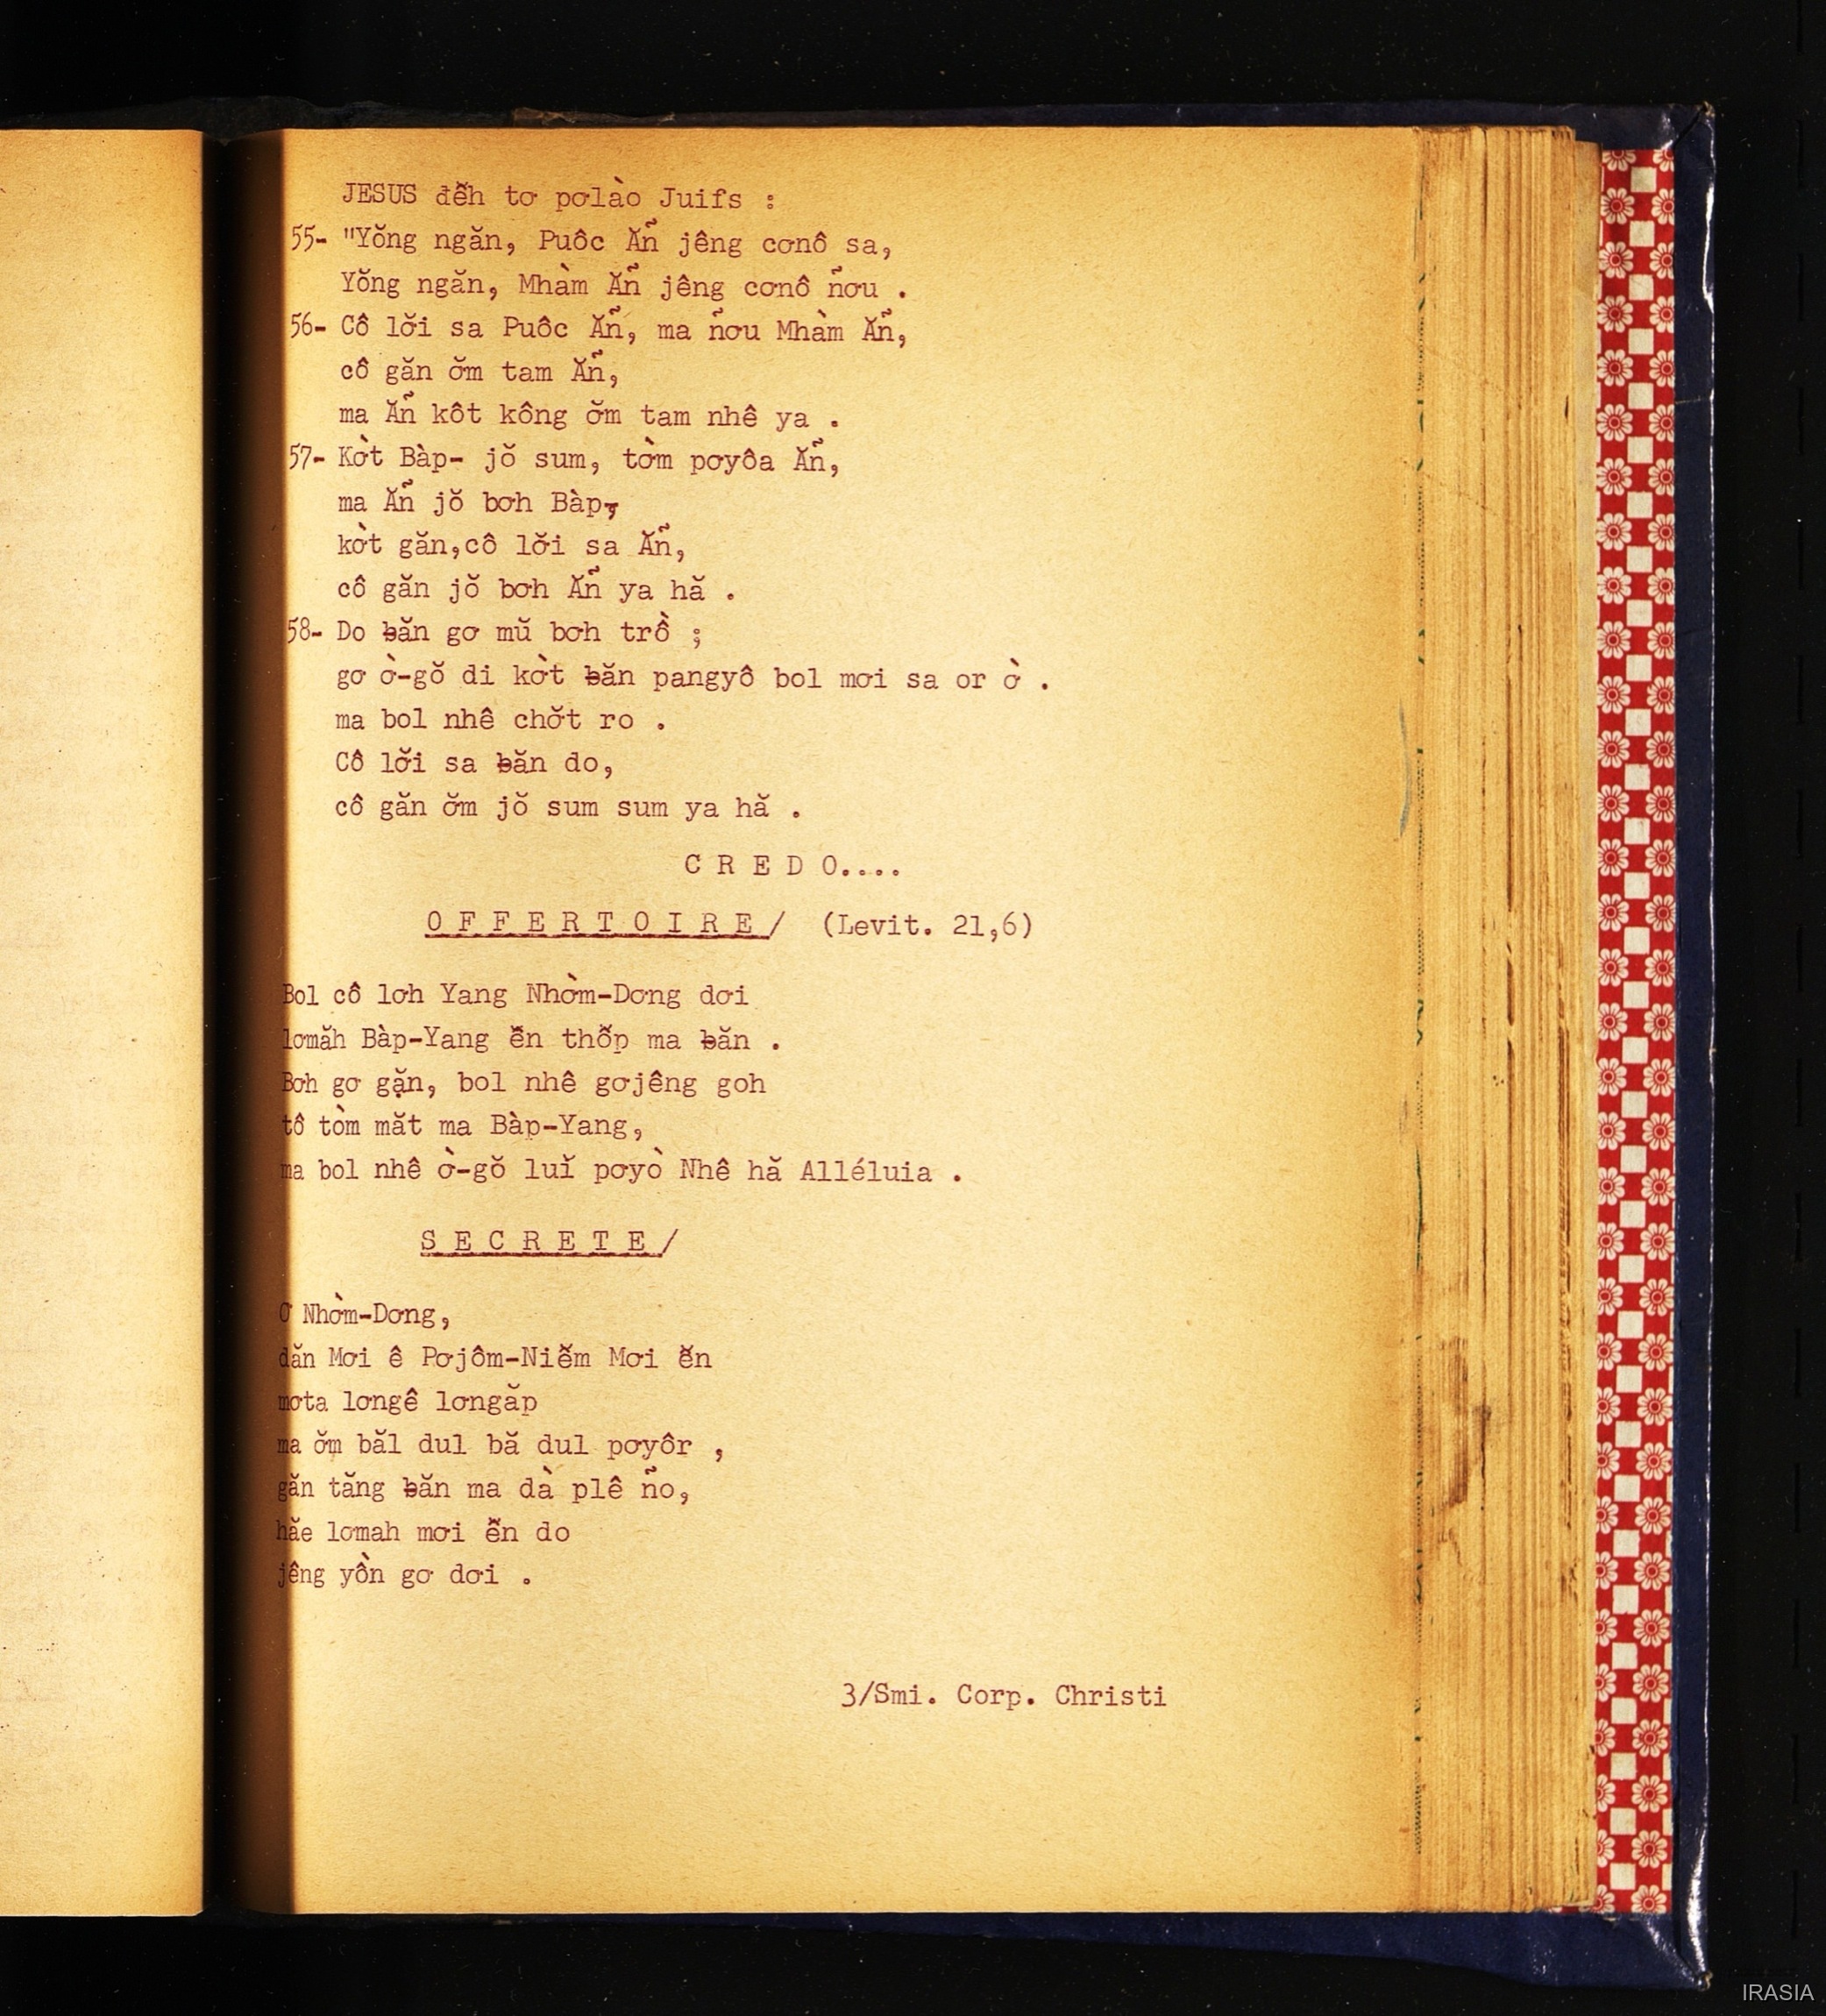 JESUS đễh tơ pơlào Juifs :
55- "Yŏng ngăn, Puôc Ăñ jêng cơnô sa,
Yŏng ngăn, Mhàm Ăñ jêng cơnô ñơu .
56- Cô lơ̆i sa Puôc Ăñ, ma ñơu Mhàm Ăñ,
cô găn ơ̆m tam Ăñ,
ma Ăñ kôt kông ơ̆m tam nhê ya .
57- Kờt Bàp- jŏ sum, tờm pơyôa Ăñ,
ma Ăñ jŏ bơh Bàp,
kờt găn,cô lơ̆i sa Ăñ,
cô găn jŏ bơh Ăñ ya hă .
58- Do ƀăn gơ mŭ bơh trồ ;
gơ ờ-gŏ di kờt ƀăn pangyô bol mơi sa or ờ .
ma bol nhê chơ̆t ro .
Cô lơ̆i sa ƀăn do,
cô găn ơ̆m jŏ sum sum ya hă .
C R E D O....
O F F E R T O I R E / (Levit. 21,6)
Bol cô lơh Yang Nhờm-Dơng dơi
lơmăh Bàp-Yang ễn thỗp ma ƀăn .
Bơh gơ gặn, bol nhê gơjêng goh
tô tòm măt ma Bàp-Yang,
ma bol nhê ờ-gŏ luĭ pơyò Nhê hă Alléluia .
S E C R E T E /
Ơ Nhờm-Dơng,
dăn Mơi ê Pơjôm-Niễm Mơi ễn
mơta lơngê lơngăp
ma ơ̆m băl dul bă dul pơyôr ,
găn tăng ƀăn ma dà plê ño,
hăe lơmah mơi ễn do
jêng yồn gơ dơi .
3/Smi. Corp. Christi
IRASIA